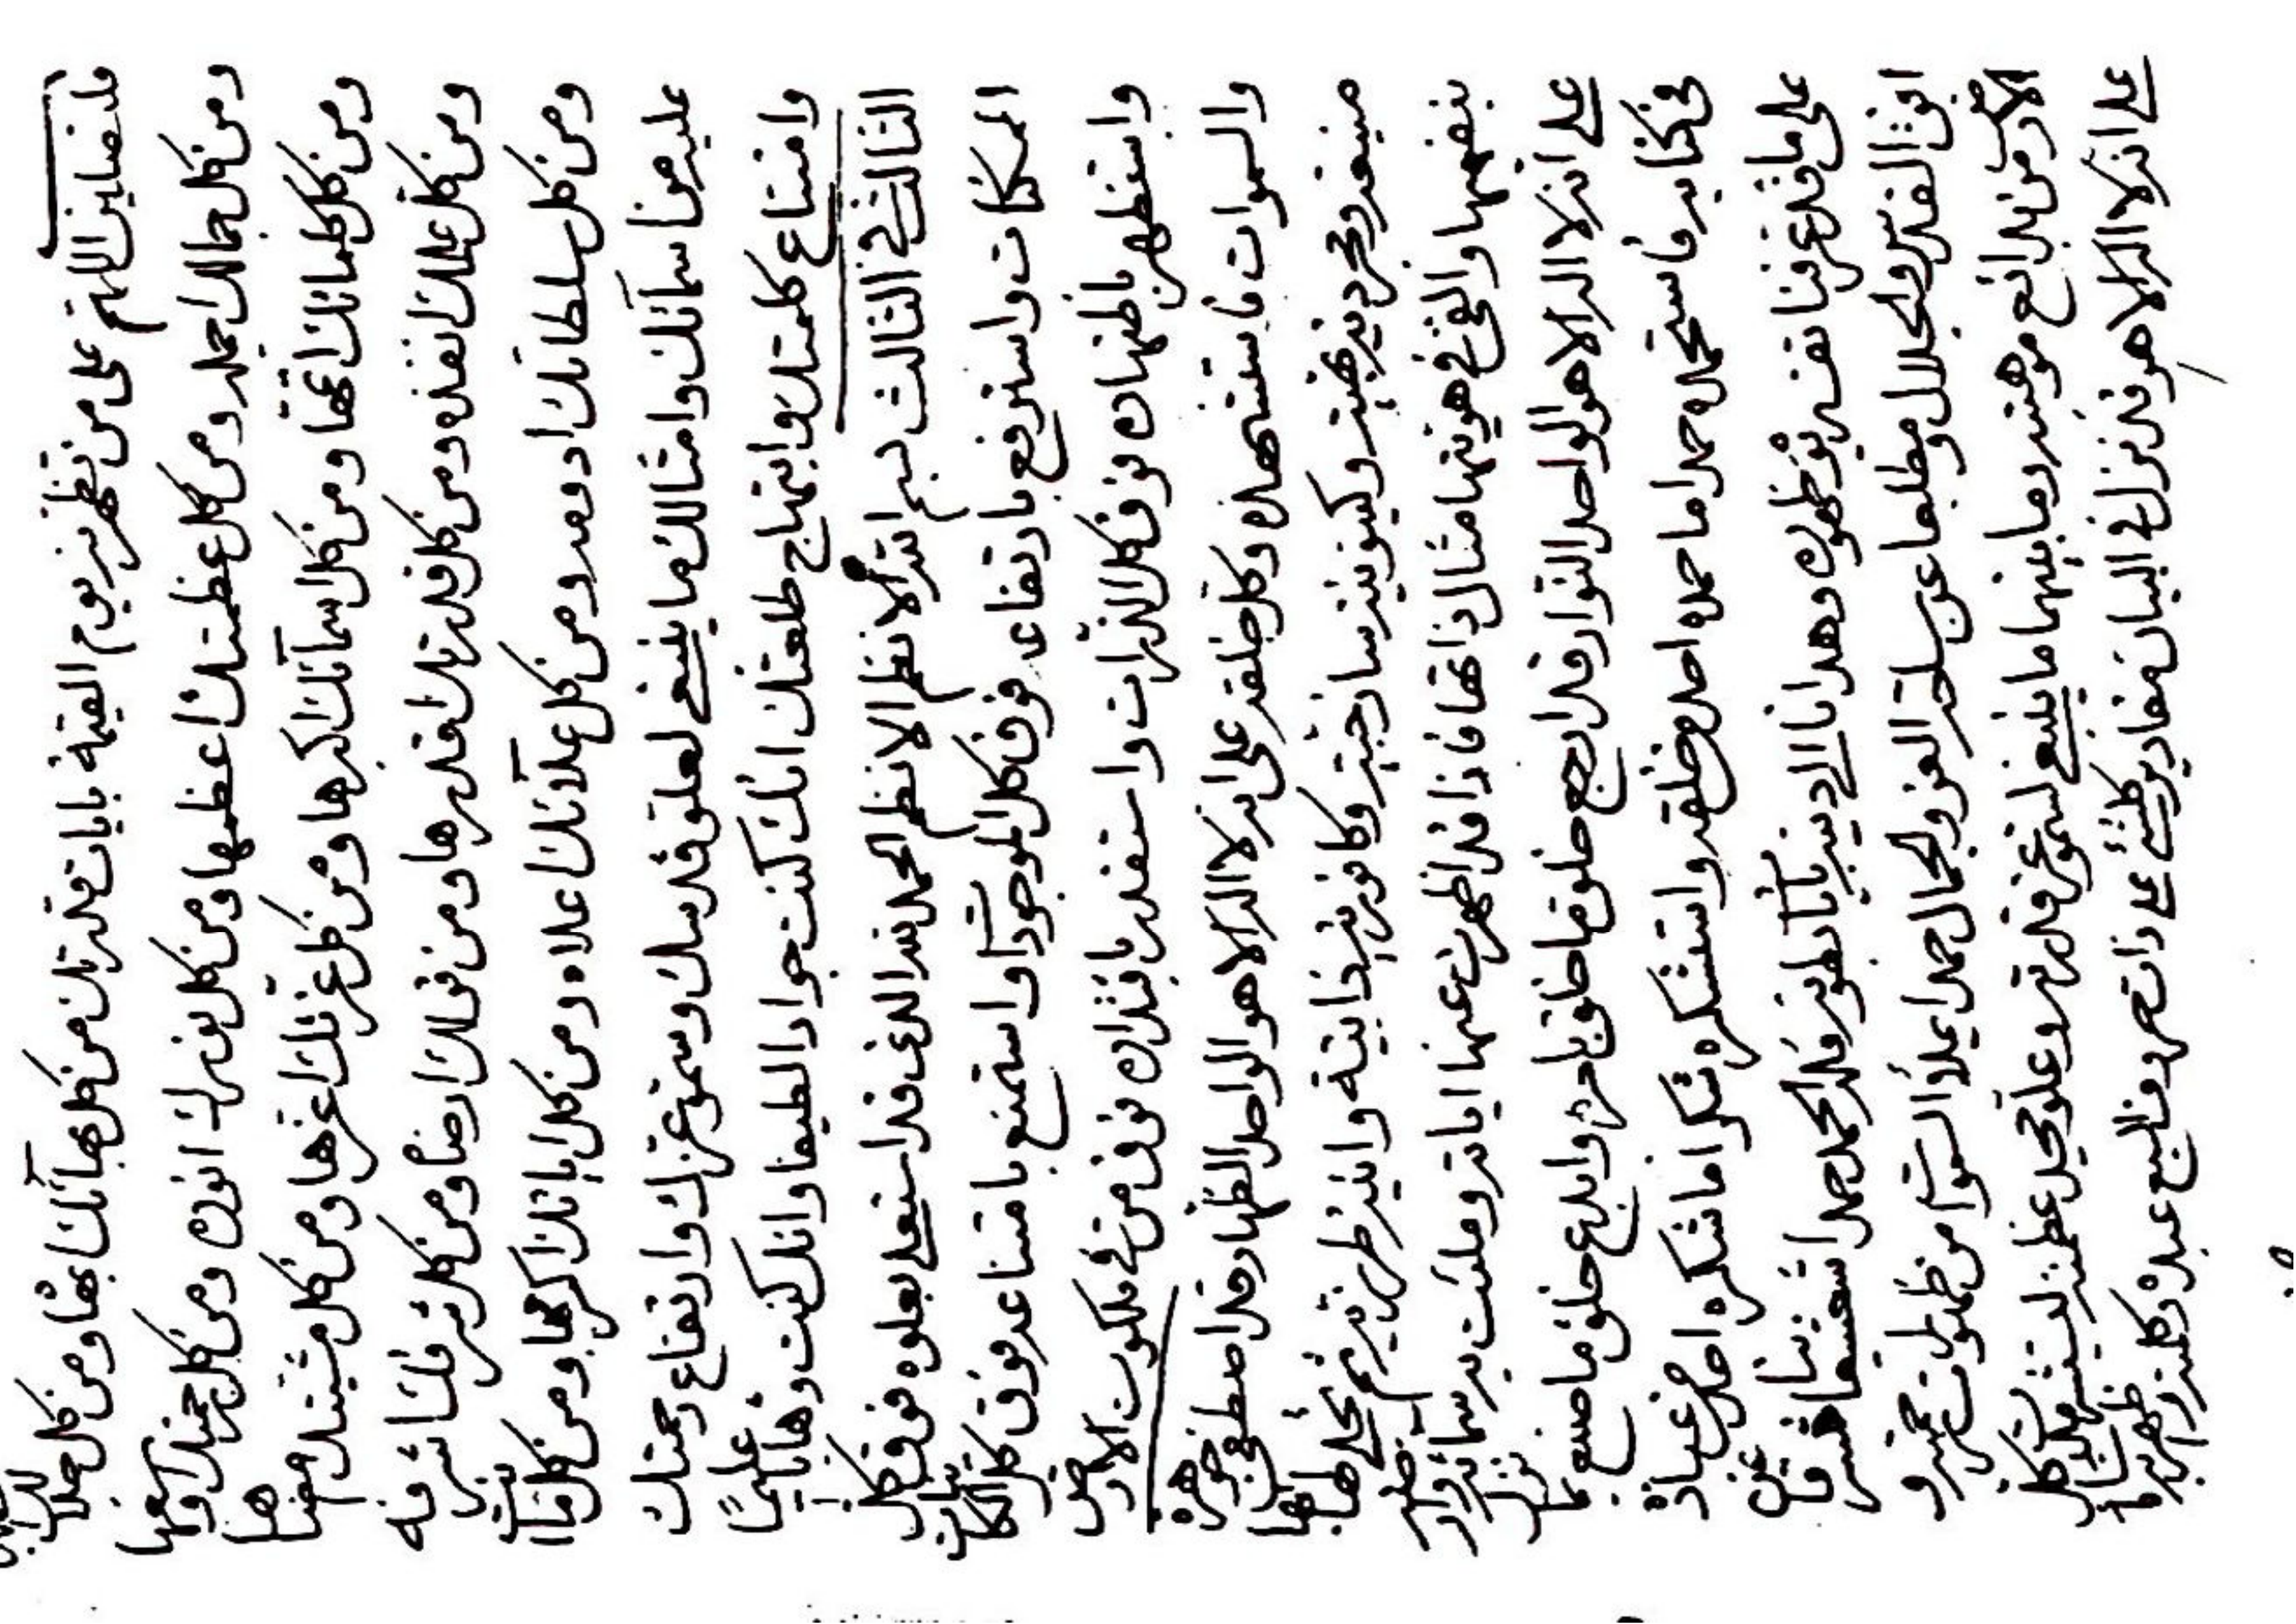 فلتصلين اللهم على من تظهرنه يوم القيمة بايات قدرتك من كل بهآئك ابهاه ومن كل جلالك اجلله
ومن كل جمالك اجمله ومن كل عظمتك اعظمها ومن كل نورك انوره ومن كل رحمتك اوسعها
ومن كل كلماتك اتمها ومن كل اسمآئك اكبرها ومن كل عزتك اعزها ومن كل مشيتك امضاها
ومن كل علمك انفذه ومن كل قدرتك اقدرها ومن قولك ارضاه ومن كل شرفك اشرفه
ومن كل سلطانك ادومه ومن كل علآئك اعلاه ومن كل اياتك اكرمها ومن كل ما انت
عليه من اسمآئك وامثالك ما ينبغي لعلو قدسك وسمو عزك وارتفاع رحمتك
وامتناع كلمتك وابتهاج طلعتك انك كنت جوادا لطيفا وانك كنت وهابا عليما
الثالث في الثالث بسم الله الانظم الانظم الحمد لله الذي قد استعلى بعلوه فوق كل
الممكنات واسترفع بارتفاعه فوق كل الموجودات واستمنع بامتناعه فوق كل الكائنات
واستظهر باظهاره فوق كل الذرات واستقدر باقتداره فوق من في ملكوت الارض
والسموات فاستشهده وكل خلقه على انه لا اله الا هو الواحد الظهار قد اصطفى جوهرة
منيعة ومجردة بهية وكينونية ساذجية وكافورية ذاتية وانية طرزية ثم تجلى لها بها
بنفسها والقى في هويتها مثال ذاتها فاذا قد اظهرت عنها اياته وملئت به سمائه وارضه
على انه لا اله الا هو الواحد النوار قد ابدع خلق ما خلق باحسن وابدع خلق ما صنع بما نزل
في كتابه فاستحمده حمدا ما حمده احد من خلقه واستشكره شكرا ما شكره احد من عباده
على ما قد عرفنا نفسه بمظهر ظهوره وهدانا الى دينه بايات بطونه فله الحمد حمدا شعشعانيا شرقا عن
افق القدس والجلال ومطلعا عن ساحة العز والجمال حمدا يملأ السموات من ظهورات حمديه و
الارض من بدائع موهبته وما بينهما ما ينبغي لسمو عز قدرته وعلو مجد عظمته ليستشهدن كل
على انه لا اله الا هو قد نزل في البيان مقادير كلشئ على ذات حروف السبع عبده وكلمته واظهر به ما شاء